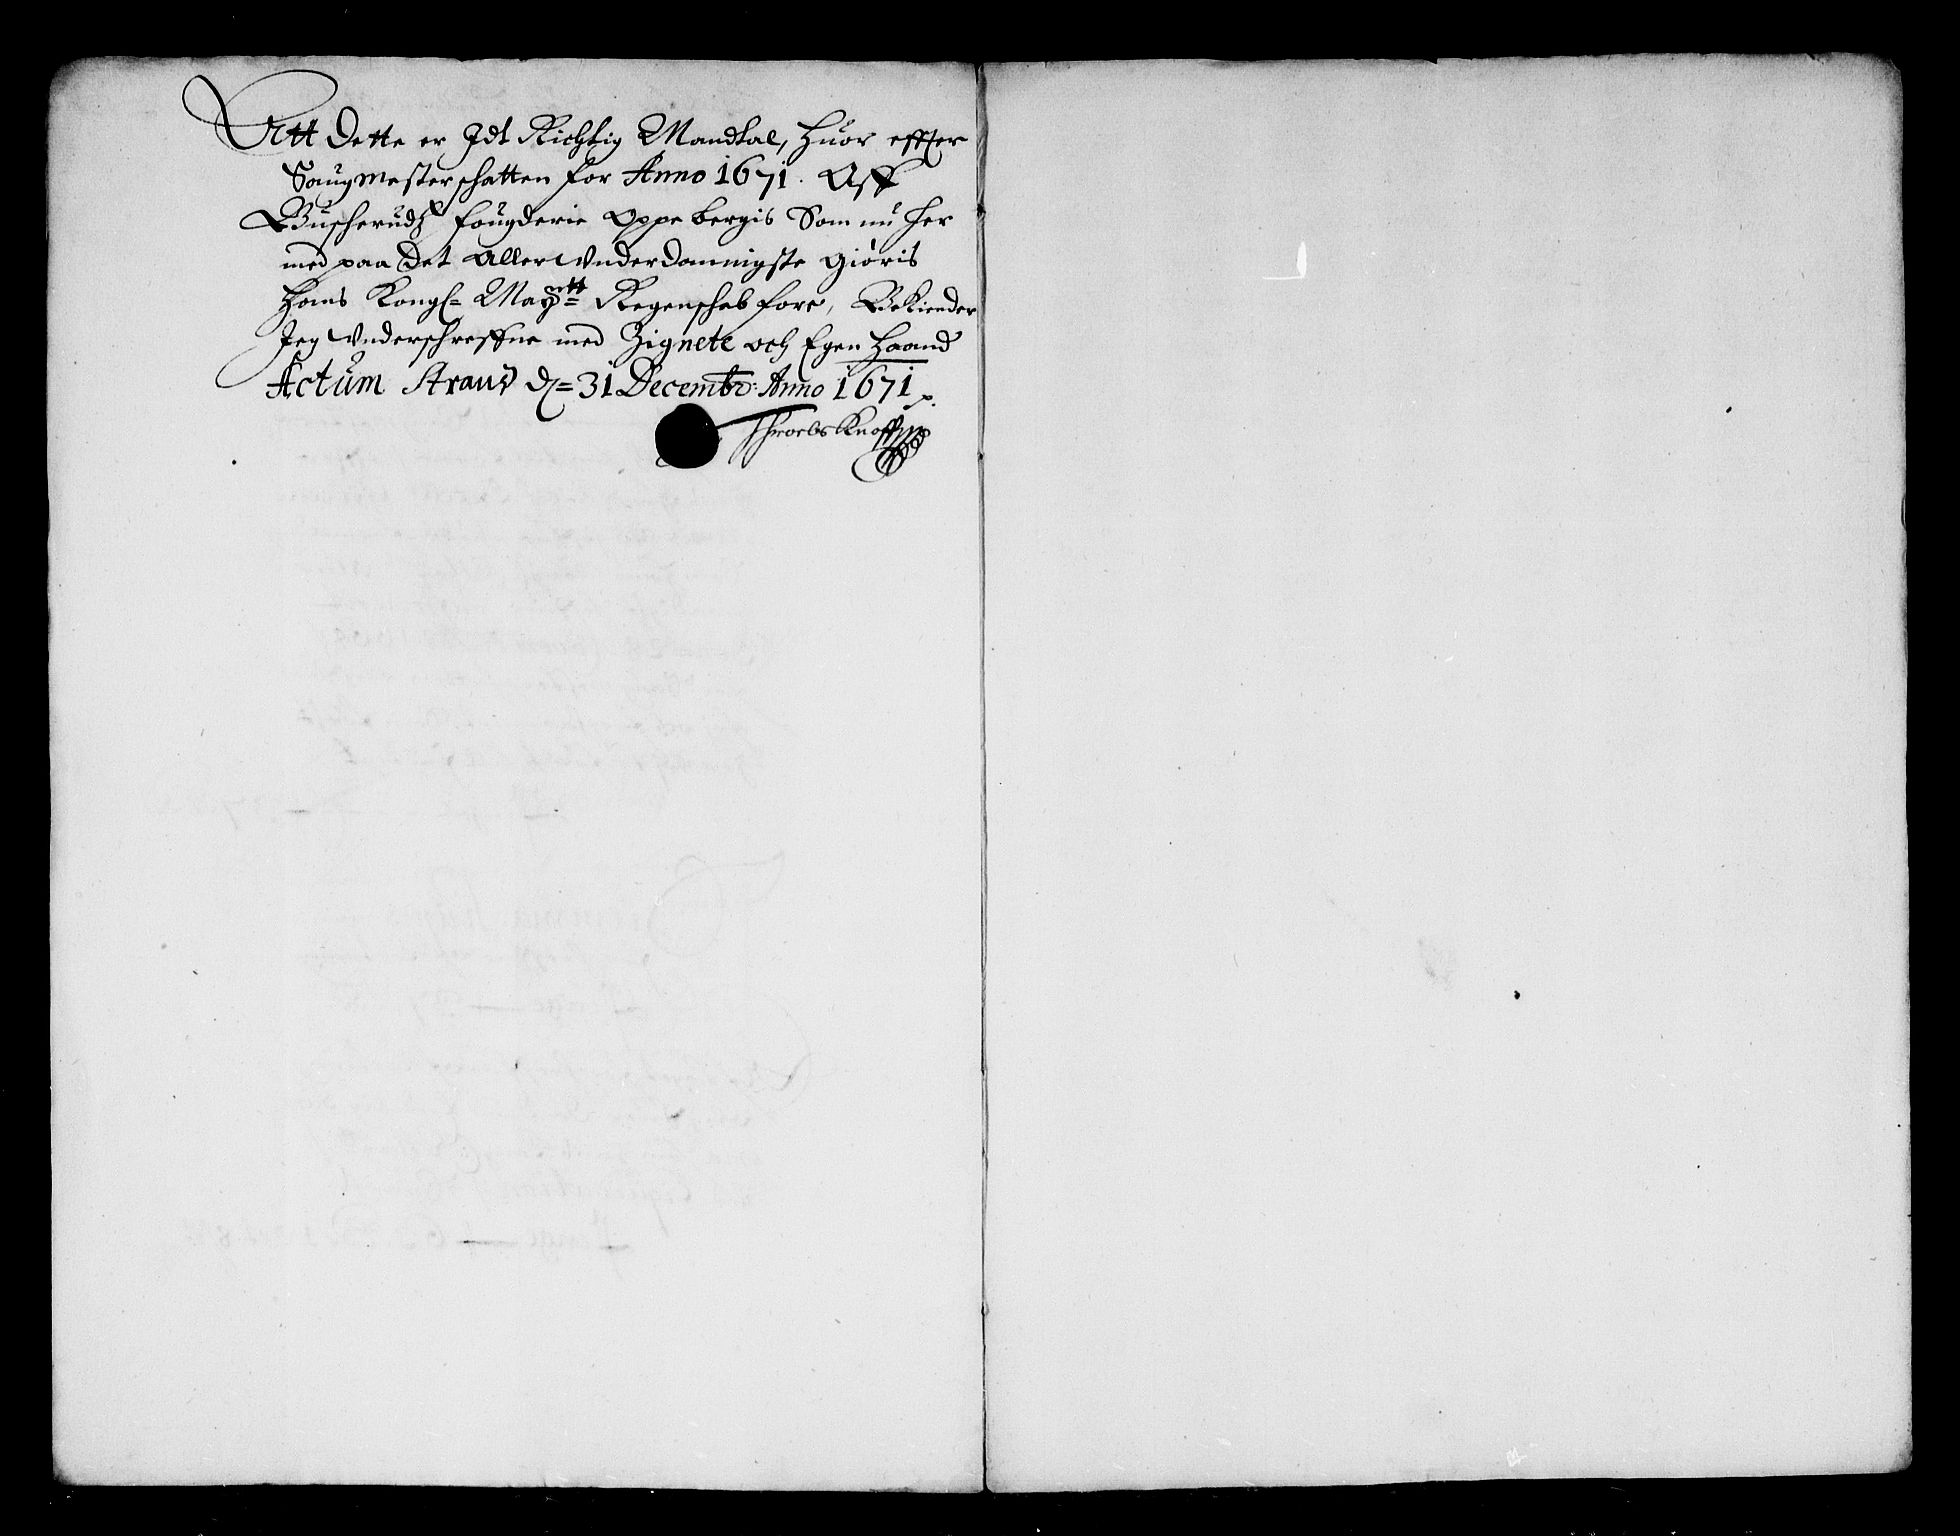 Att Dette er Jdt Richtig Mandtal, huor effter
Saugmesterschatten for Anno 1671. Aff
Buscherudtz fougderie Oppebergis Som nu her
med paa Det Allerunderdannigste Giöris
Hans Kongl= Maÿtt= Regenschab fore, Bekiender
Jeg Underschreffne med Zignete och Egen Haand
Actum den= 31 Decembr: Anno 1671
Knoff